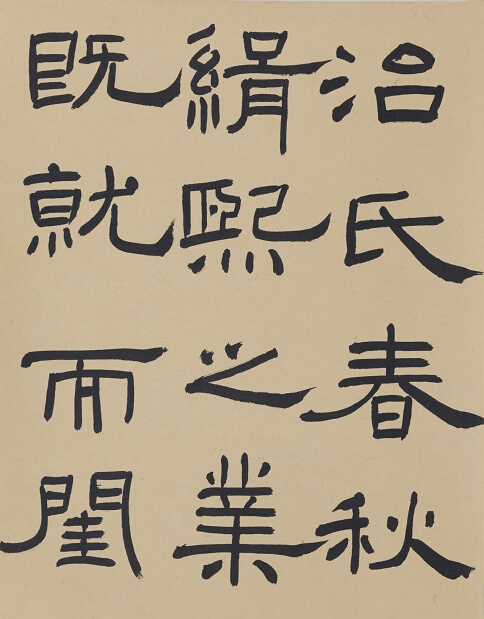 治氏春秋
緝熙之業
既就而閨